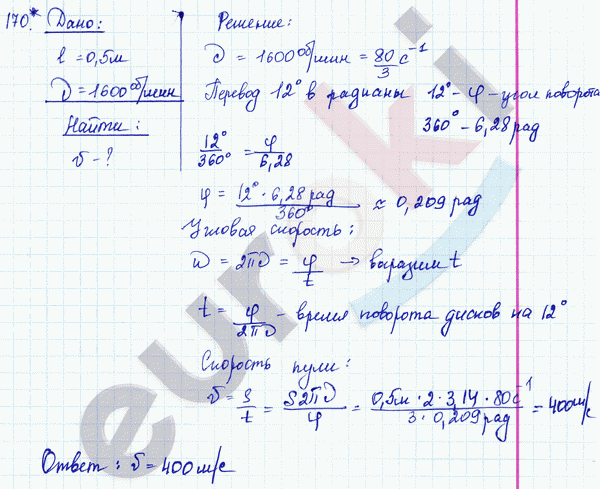 170.* Дано:
l = 0,5м
ν = 1600 об/мин
Найти:
v - ?
Решение:
ν = 1600 об/мин = 80/3 с⁻¹
Перевод 12° в радианы 12° - φ - угол поворота
360° - 6,28 рад
12°/360° = φ/6,28
φ = 12° · 6,28 рад/360° ≈ 0,209 рад
Угловая скорость:
ω = 2πν = φ/t → выразим t
t = φ/2πν - время поворота дисков на 12°
Скорость пули:
v = S/t = S2πν/φ = 0,5м · 2 · 3,14 · 80с⁻¹/3 · 0,209 рад = 400м/с
Ответ: v = 400 м/с
euroki